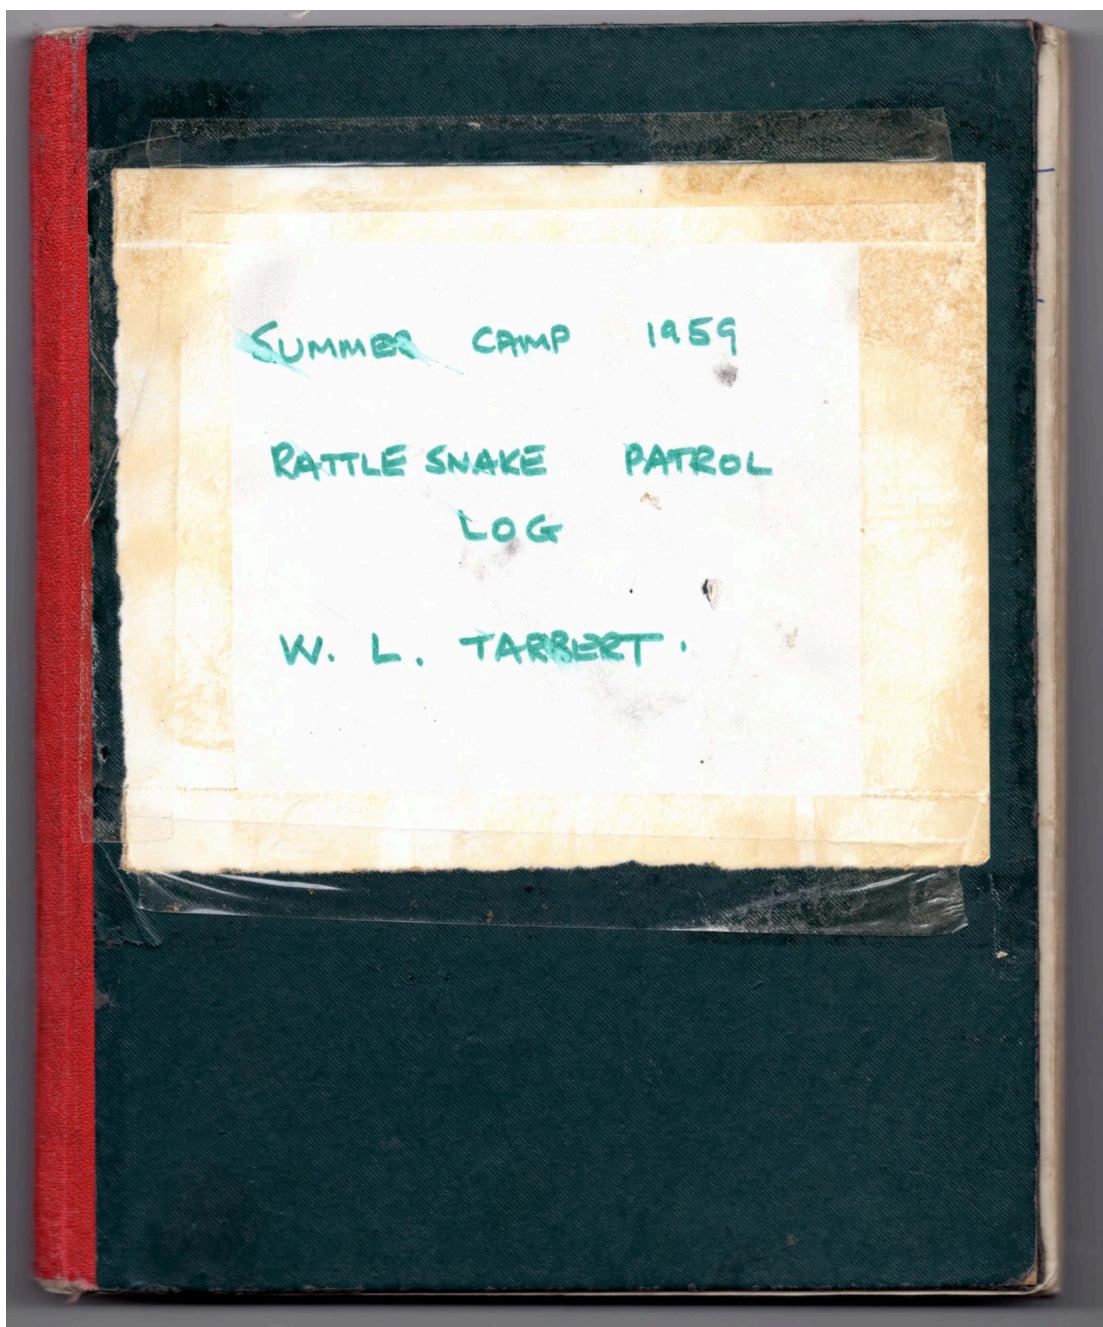 SUMMER CAMP 1959
RATTLE SNAKE PATROL
LOG
W. L. TARBERT.